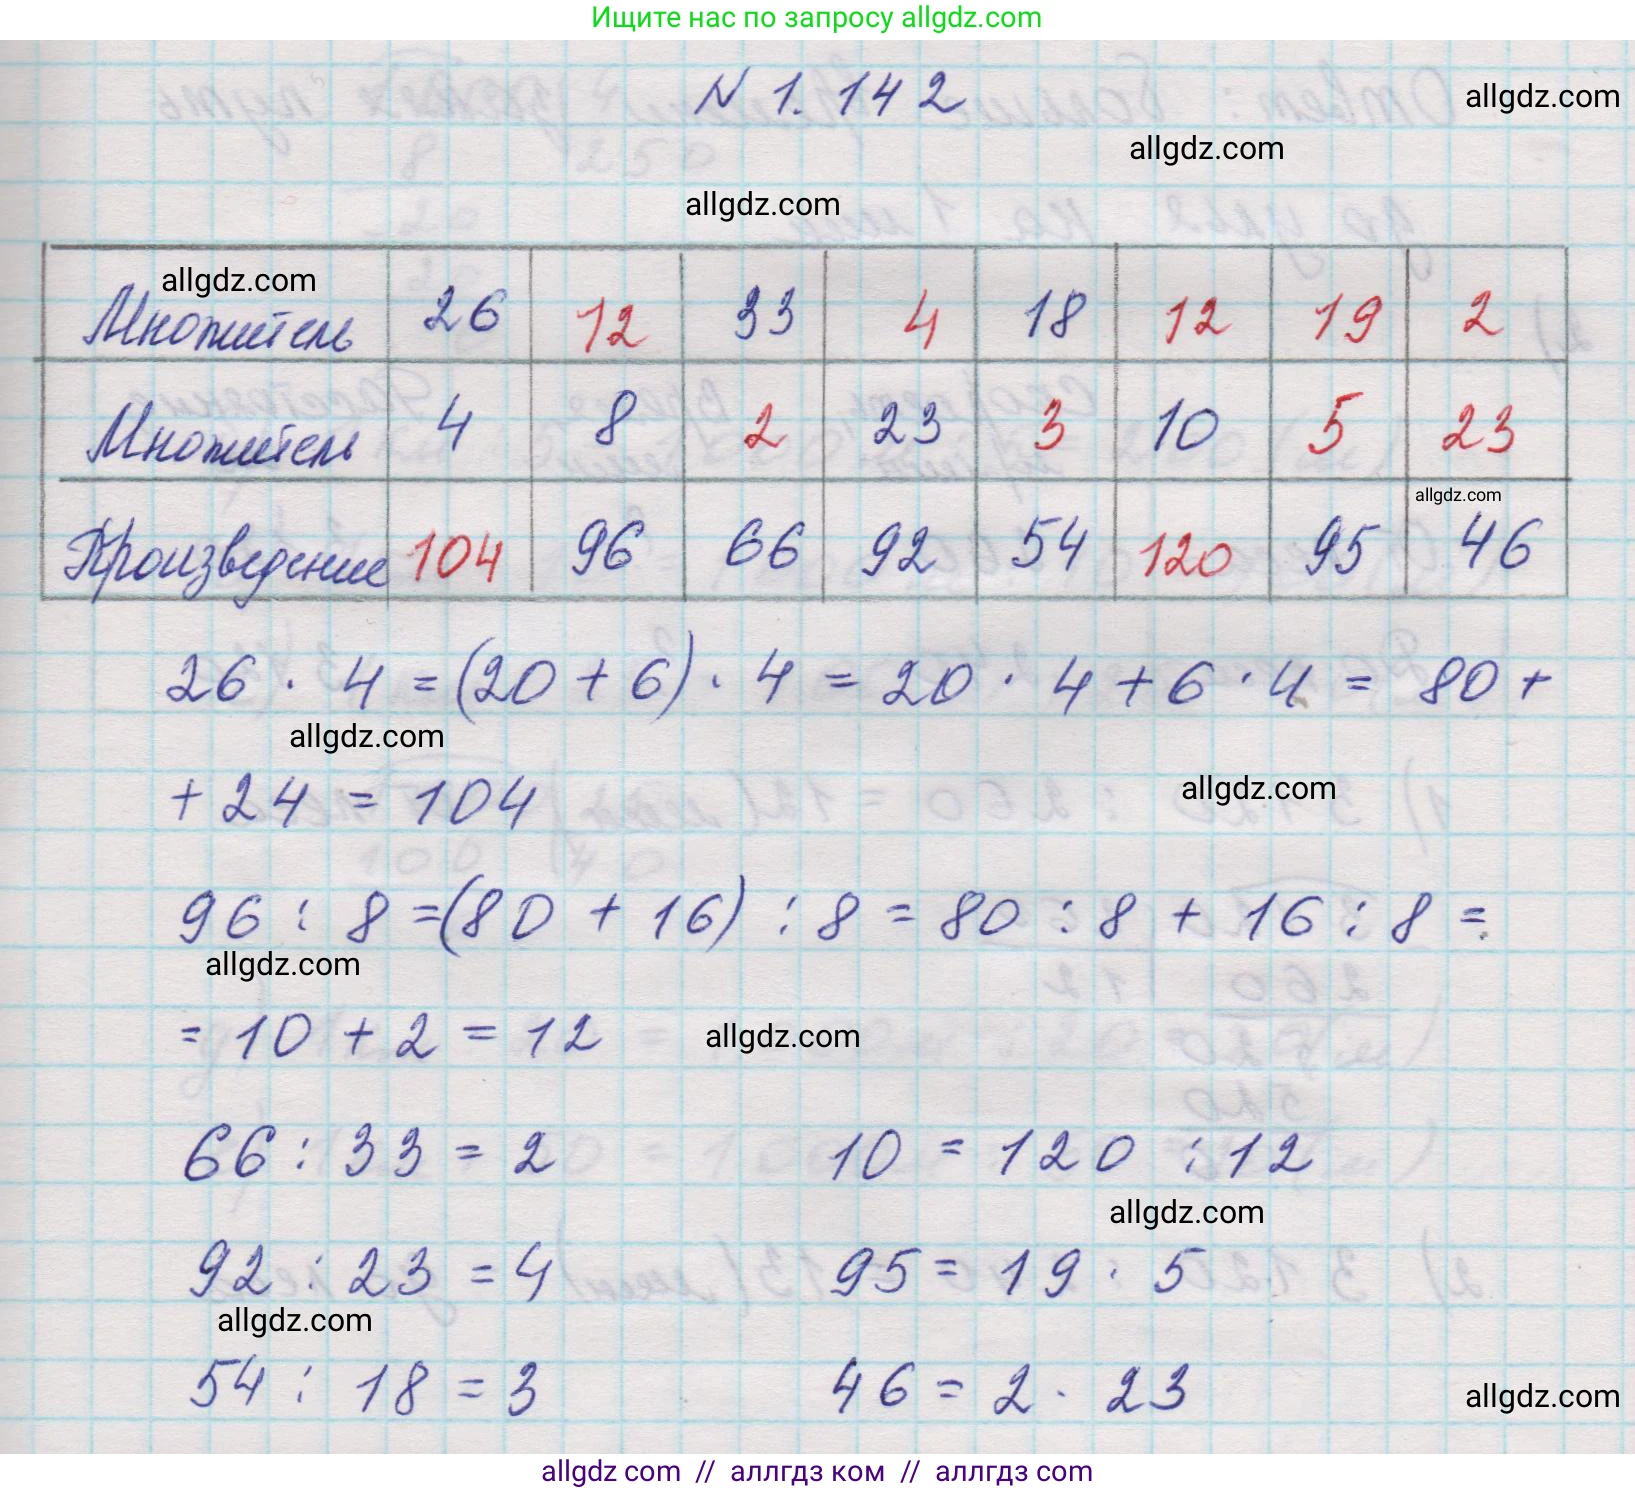 Ищите нас по запросу allgdz.com
N 1.142
allgdz.com
allgdz.com
allgdz.com
allgdz.com
Множитель 26 12 33 4 18 12 19 2
Множитель 4 8 2 23 3 10 5 23
allgdz.com
Произведение 104 96 66 92 54 120 95 46
26 · 4 = (20 + 6) · 4 = 20 · 4 + 6 · 4 = 80 +
allgdz.com
allgdz.com
+ 24 = 104
96 : 8 = (80 + 16) : 8 = 80 : 8 + 16 : 8 =
allgdz.com
= 10 + 2 = 12
allgdz.com
66 : 33 = 2 10 = 120 : 12
allgdz.com
92 : 23 = 4 95 = 19 · 5
allgdz.com
54 : 18 = 3 46 = 2 · 23
allgdz.com
allgdz com // аллгдз ком // аллгдз com